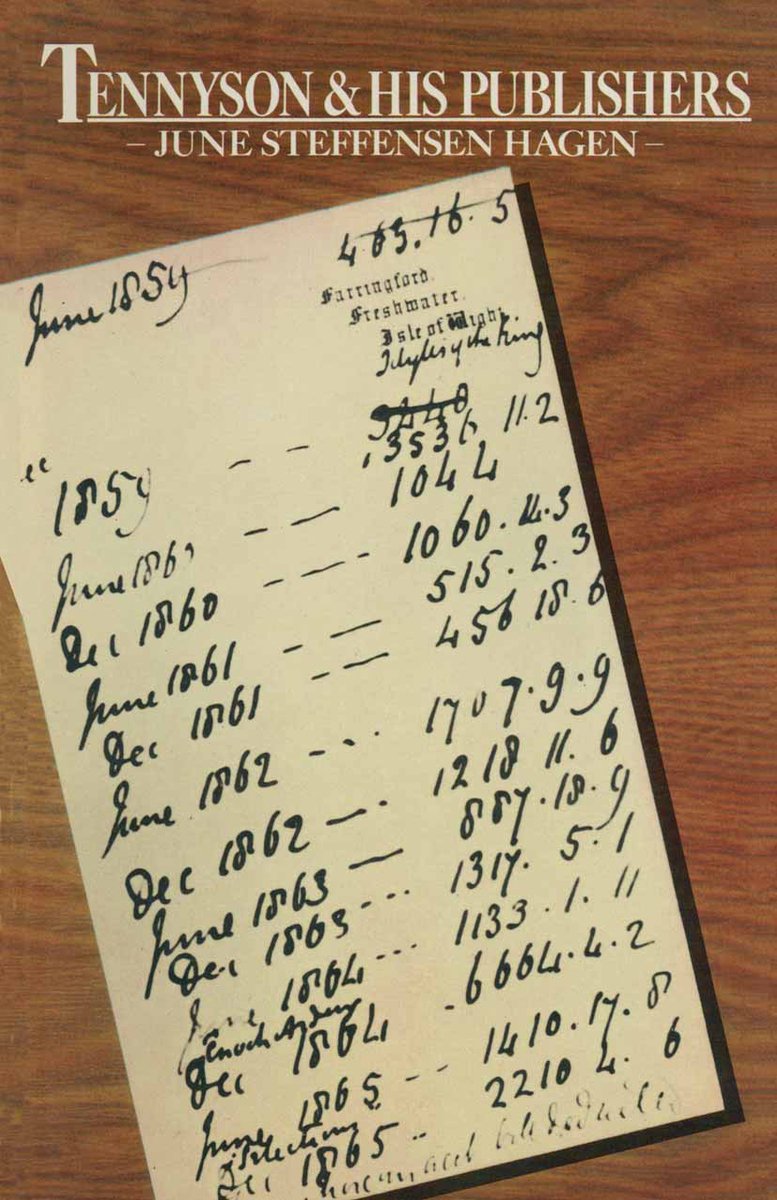 TENNYSON & HIS PUBLISHERS
– JUNE STEFFENSEN HAGEN –
June 1859 463.16.5
Farringford,
Freshwater,
Isle of Wight.
Idylls of the King
3440
" 1859 – – 3536 11.2
June 1860 – – 1044
Dec 1860 – – – 1060.4.3
June 1861 – – 515.2.3
Dec 1861 – – 456 18.6
June 1862 – – . 1707.9.9
Dec 1862 – . 1218 11.6
June 1863 – 887.18.9
Dec 1863 ... 1317.5.1
June 1864 ... 1133.1.11
Enoch Arden
Dec 1864 6664.4.2
June 1865 – – 1410.17.8
Selections
Dec 1865 .. 2210 4.6